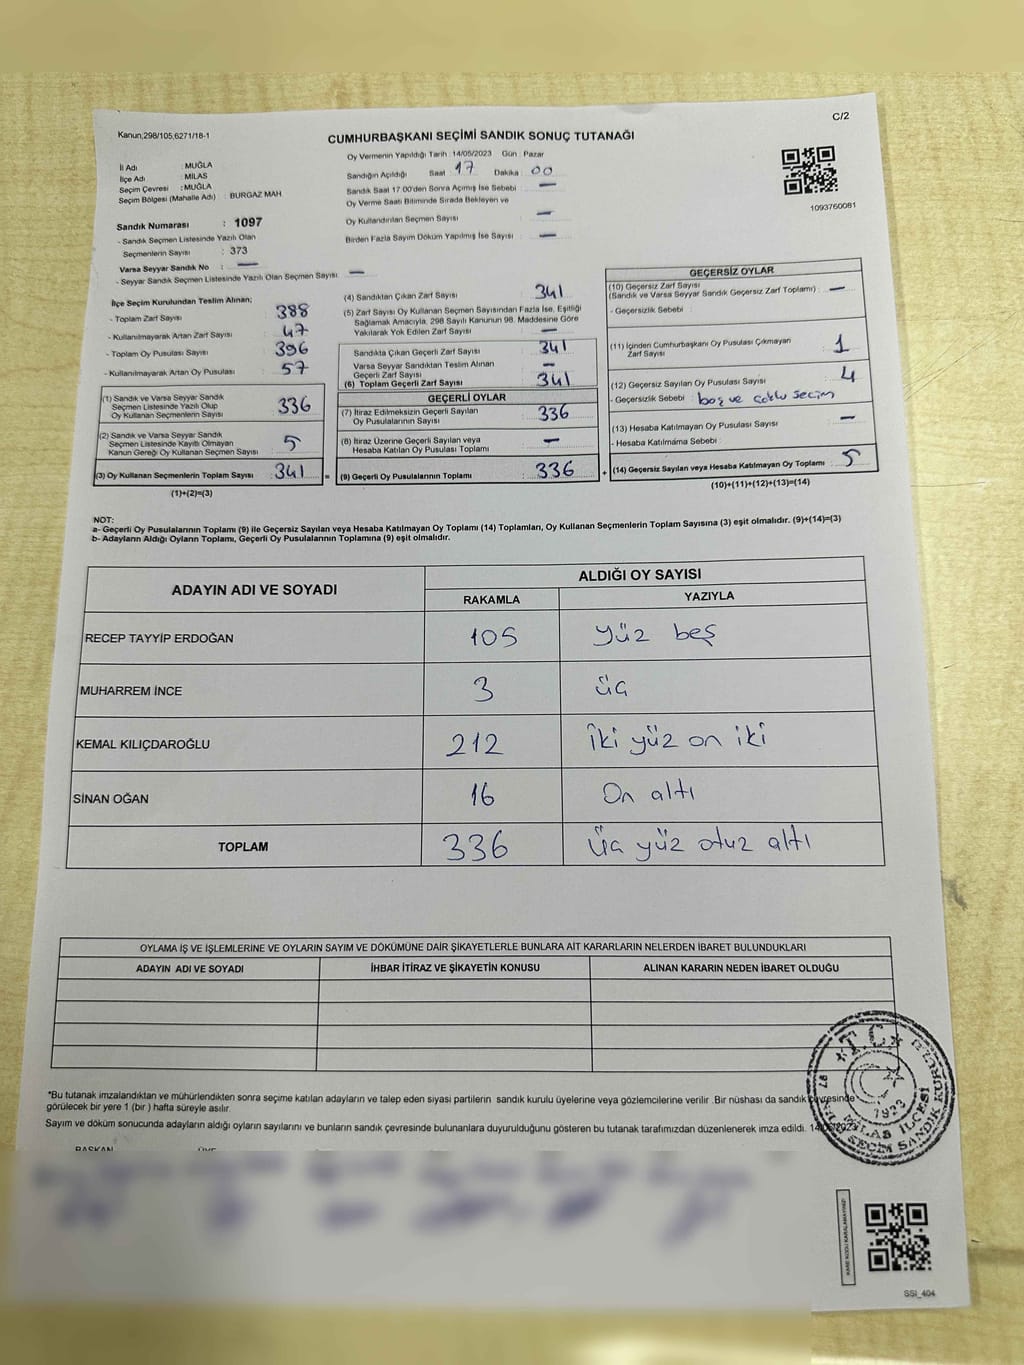 C/2
Kanun,298/105,6271/18-1
CUMHURBAŞKANI SEÇİMİ SANDIK SONUÇ TUTANAĞI
İl Adı : MUĞLA
İlçe Adı : MİLAS
Seçim Çevresi : MUĞLA
Seçim Bölgesi (Mahalle Adı) : BURGAZ MAH
Sandık Numarası : 1097
- Sandık Seçmen Listesinde Yazılı Olan
Seçmenlerin Sayısı : 373
Varsa Seyyar Sandık No : —
- Seyyar Sandık Seçmen Listesinde Yazılı Olan Seçmen Sayısı : —
Oy Vermenin Yapıldığı Tarih : 14/05/2023 Gün : Pazar
Sandığın Açıldığı Saat : 17 Dakika : 00
Sandık Saat 17:00'den Sonra Açımış İse Sebebi : —
Oy Verme Saati Bitiminde Sırada Bekleyen ve
Oy Kullandırılan Seçmen Sayısı : —
Birden Fazla Sayım Döküm Yapılmış İse Sayısı : —
1093760081
İlçe Seçim Kurulundan Teslim Alınan;
- Toplam Zarf Sayısı : 388
- Kullanılmayarak Artan Zarf Sayısı : 47
- Toplam Oy Pusulası Sayısı : 396
- Kullanılmayarak Artan Oy Pusulası : 57
(1) Sandık ve Varsa Seyyar Sandık
Seçmen Listesinde Yazılı Olup
Oy Kullanan Seçmenlerin Sayısı : 336
(2) Sandık ve Varsa Seyyar Sandık
Seçmen Listesinde Kayıtlı Olmayan
Kanun Gereği Oy Kullanan Seçmen Sayısı : 5
(3) Oy Kullanan Seçmenlerin Toplam Sayısı : 341 =
(1)+(2)=(3)
(4) Sandıktan Çıkan Zarf Sayısı : 341
(5) Zarf Sayısı Oy Kullanan Seçmen Sayısından Fazla İse, Eşitliği
Sağlamak Amacıyla, 298 Sayılı Kanunun 98. Maddesine Göre
Yakılarak Yok Edilen Zarf Sayısı : —
Sandıkta Çıkan Geçerli Zarf Sayısı : 341
Varsa Seyyar Sandıktan Teslim Alınan
Geçerli Zarf Sayısı : —
(6) Toplam Geçerli Zarf Sayısı : 341
GEÇERLİ OYLAR
(7) İtiraz Edilmeksizin Geçerli Sayılan
Oy Pusulalarının Sayısı : 336
(8) İtiraz Üzerine Geçerli Sayılan veya
Hesaba Katılan Oy Pusulası Toplamı : —
(9) Geçerli Oy Pusulalarının Toplamı : 336 +
GEÇERSİZ OYLAR
(10) Geçersiz Zarf Sayısı
(Sandık ve Varsa Seyyar Sandık Geçersiz Zarf Toplamı) : —
- Geçersizlik Sebebi :
(11) İçinden Cumhurbaşkanı Oy Pusulası Çıkmayan
Zarf Sayısı : 1
(12) Geçersiz Sayılan Oy Pusulası Sayısı : 4
- Geçersizlik Sebebi : boş ve çoklu seçim
(13) Hesaba Katılmayan Oy Pusulası Sayısı : —
- Hesaba Katılmama Sebebi :
(14) Geçersiz Sayılan veya Hesaba Katılmayan Oy Toplamı : 5
(10)+(11)+(12)+(13)=(14)
NOT:
a- Geçerli Oy Pusulalarının Toplamı (9) ile Geçersiz Sayılan veya Hesaba Katılmayan Oy Toplamı (14) Toplamları, Oy Kullanan Seçmenlerin Toplam Sayısına (3) eşit olmalıdır. (9)+(14)=(3)
b- Adayların Aldığı Oyların Toplamı, Geçerli Oy Pusulalarının Toplamına (9) eşit olmalıdır.
ADAYIN ADI VE SOYADI ALDIĞI OY SAYISI
RAKAMLA YAZIYLA
RECEP TAYYİP ERDOĞAN 105 yüz beş
MUHARREM İNCE 3 üç
KEMAL KILIÇDAROĞLU 212 İki yüz on iki
SİNAN OĞAN 16 On altı
TOPLAM 336 Üç yüz otuz altı
OYLAMA İŞ VE İŞLEMLERİNE VE OYLARIN SAYIM VE DÖKÜMÜNE DAİR ŞİKAYETLERLE BUNLARA AİT KARARLARIN NELERDEN İBARET BULUNDUKLARI
ADAYIN ADI VE SOYADI İHBAR İTİRAZ VE ŞİKAYETİN KONUSU ALINAN KARARIN NEDEN İBARET OLDUĞU
*Bu tutanak imzalandıktan ve mühürlendikten sonra seçime katılan adayların ve talep eden siyasi partilerin sandık kurulu üyelerine veya gözlemcilerine verilir .Bir nüshası da sandık çevresinde
görülecek bir yere 1 (bir ) hafta süreyle asılır.
Sayım ve döküm sonucunda adayların aldığı oyların sayılarını ve bunların sandık çevresinde bulunanlara duyurulduğunu gösteren bu tutanak tarafımızdan düzenlenerek imza edildi. 14/05/2023
T.C.
1923
MİLAS İLÇESİ
SEÇİM SANDIK KURULU
BAŞKAN ÜYE
KARE KODU KARALAMAYINIZ!
SSI_404